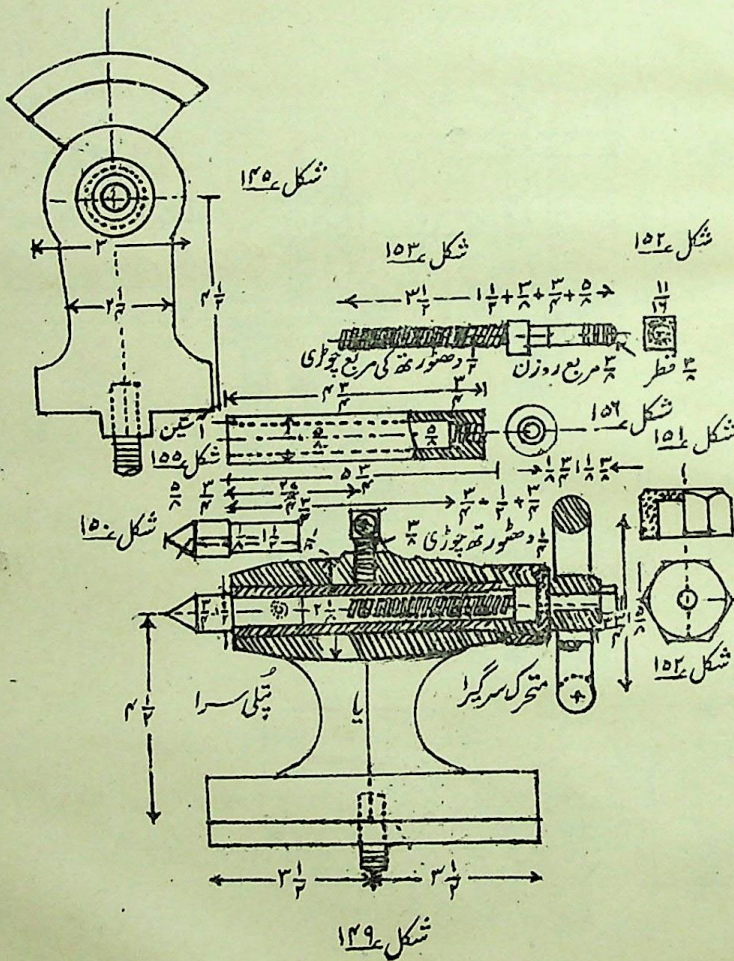 شکل ۱۴۵
۳
۲ ۱/۴
۴ ۱/۲
شکل ۱۵۳
شکل ۱۵۲
۳ ۱/۲ — ۱ ۱/۲ + ۳/۸ + ۳/۴ + ۵/۸
۱۱/۱۶
۱/۲ دھٹورتھ کی مربع چوڑی
۳/۸ مربع روزن
۳/۸ قطر
۴ ۳/۴
۳/۴
آستین
۵/۸
۵/۸
شکل ۱۵۶
شکل ۱۵۱
شکل ۱۵۵
۵ ۳/۴
۵/۸
۳/۴
۳/۴ + ۱/۲ + ۳/۴
شکل ۱۵۰
۱/۲ دھٹورتھ چوڑی ۳/۸
۲ ۱/۲
شکل ۱۵۲
۴ ۱/۲
پتلی سرا
یا
متحرک سرگیرا
۳ ۱/۲
۳ ۱/۲
شکل ۱۴۹